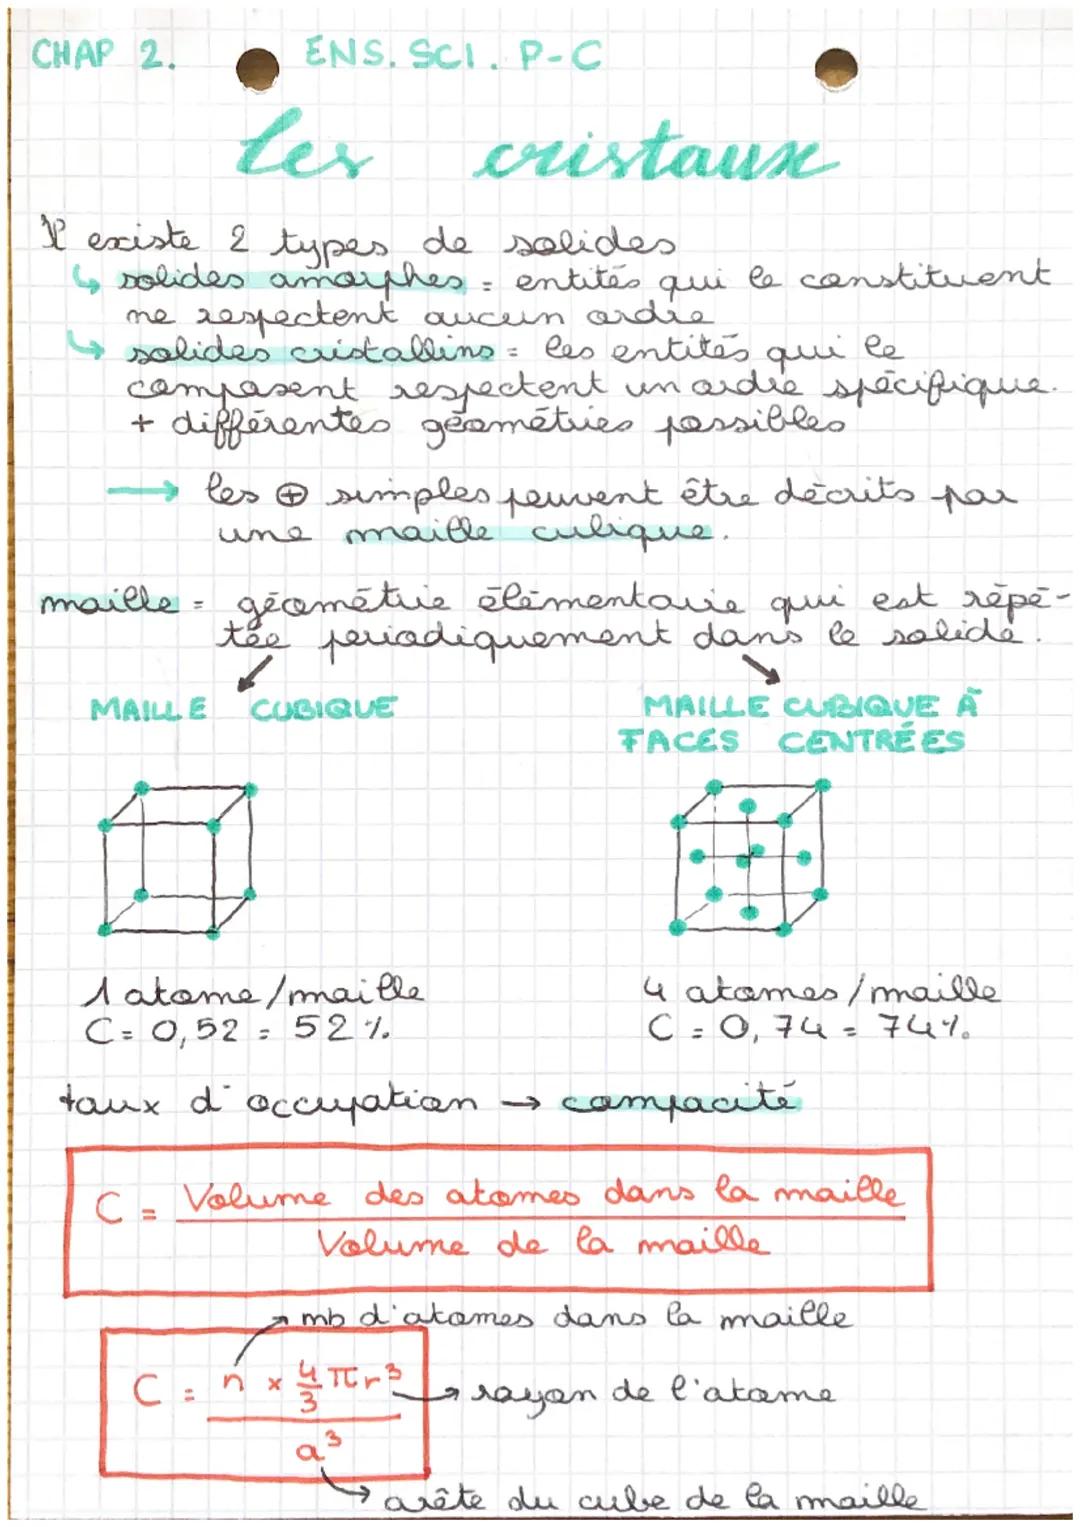 CHAP 2. ENS. SCI. P-C
les cristaux
Il existe 2 types de solides
↳ solides amorphes = entités qui le constituent
ne respectent aucun ordre
↳ solides cristallins = les entités qui le
composent respectent un ordre spécifique.
+ différentes géométries possibles
→ les ⊕ simples peuvent être décrits par
une maille cubique.
maille = géométrie élémentaire qui est répé-
tée periodiquement dans le solide.
MAILLE CUBIQUE
MAILLE CUBIQUE À
FACES CENTRÉES
1 atome/maille
C = 0,52 = 52%.
4 atomes/maille
C = 0,74 = 74%.
taux d'occupation → compacité
C = Volume des atomes dans la maille
Volume de la maille
nb d'atomes dans la maille
C = n × 4/3 πr³
→ rayon de l'atome
a³
→ arête du cube de la maille